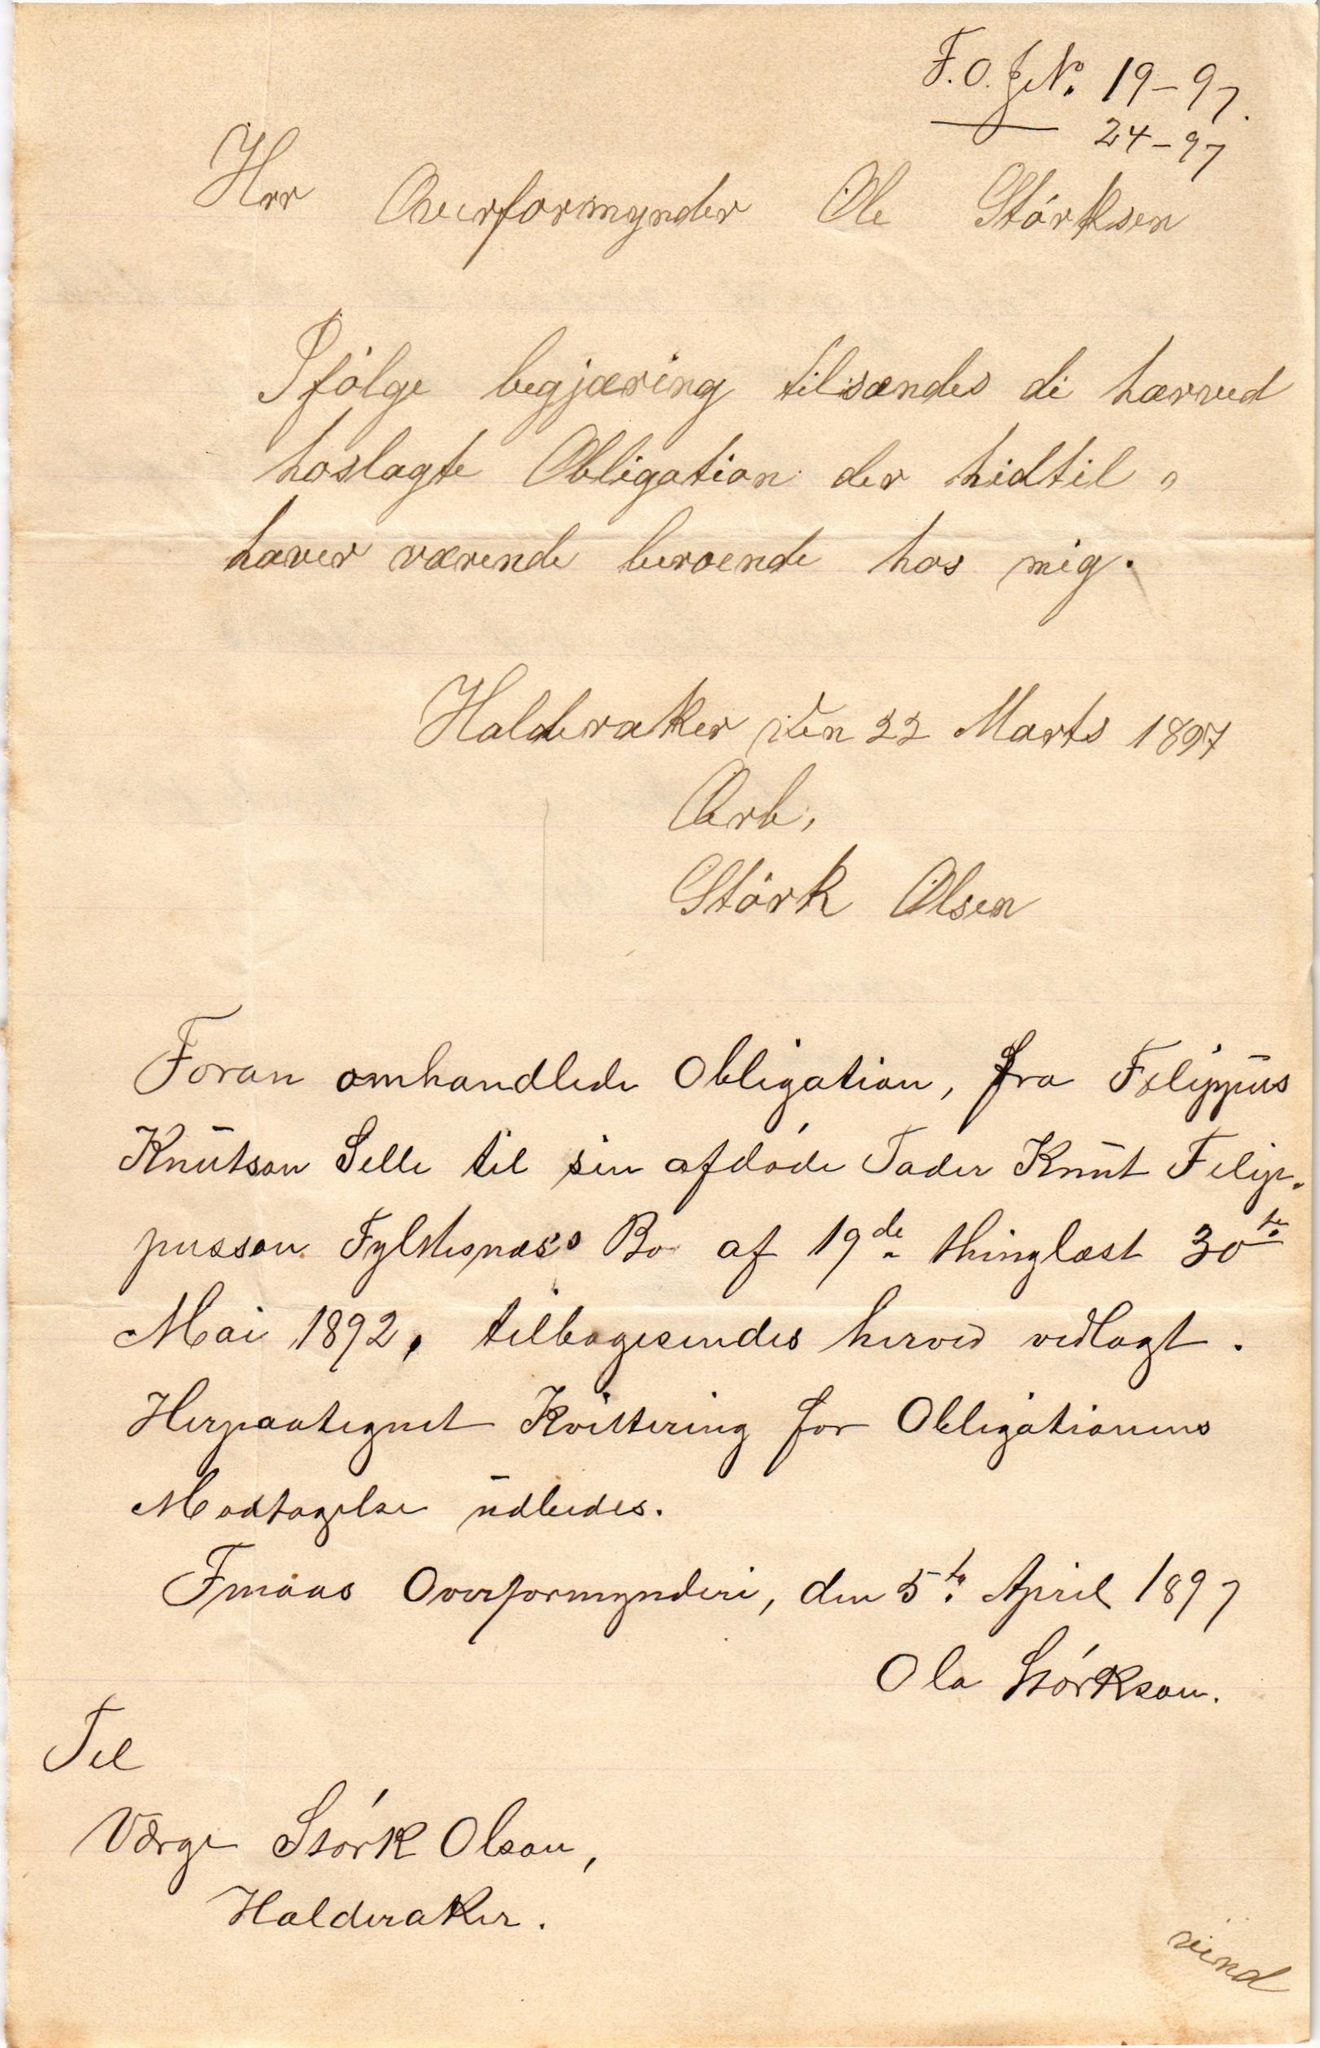 F.O. J.No. 19-97.
— 24-97
Hrr Overformynder Ole Störksen
Ifölge begjæring tilsændes di hærved
hoslagte Obligation der hidtil
haver værende beroende hos mig.
Halderaker den 22 Marts 1897
Ærb,
Störk Olsen
Foran omhandlede Obligation, fra Filippus
Knutson Selle til sin afdöde Fader Knut Filip-
pusson Fylkesnæs's Bo af 19de thinglæst 30te
Mai 1892, tilbagesendes herved vedlagt.
Herpaategnet Kvittering for Obligationens
Modtagelse udbedes.
Fmaas Overformynderi, den 5te April 1897
Ola Störkson.
Til
Værge Störk Olson,
Halderaker.
vend